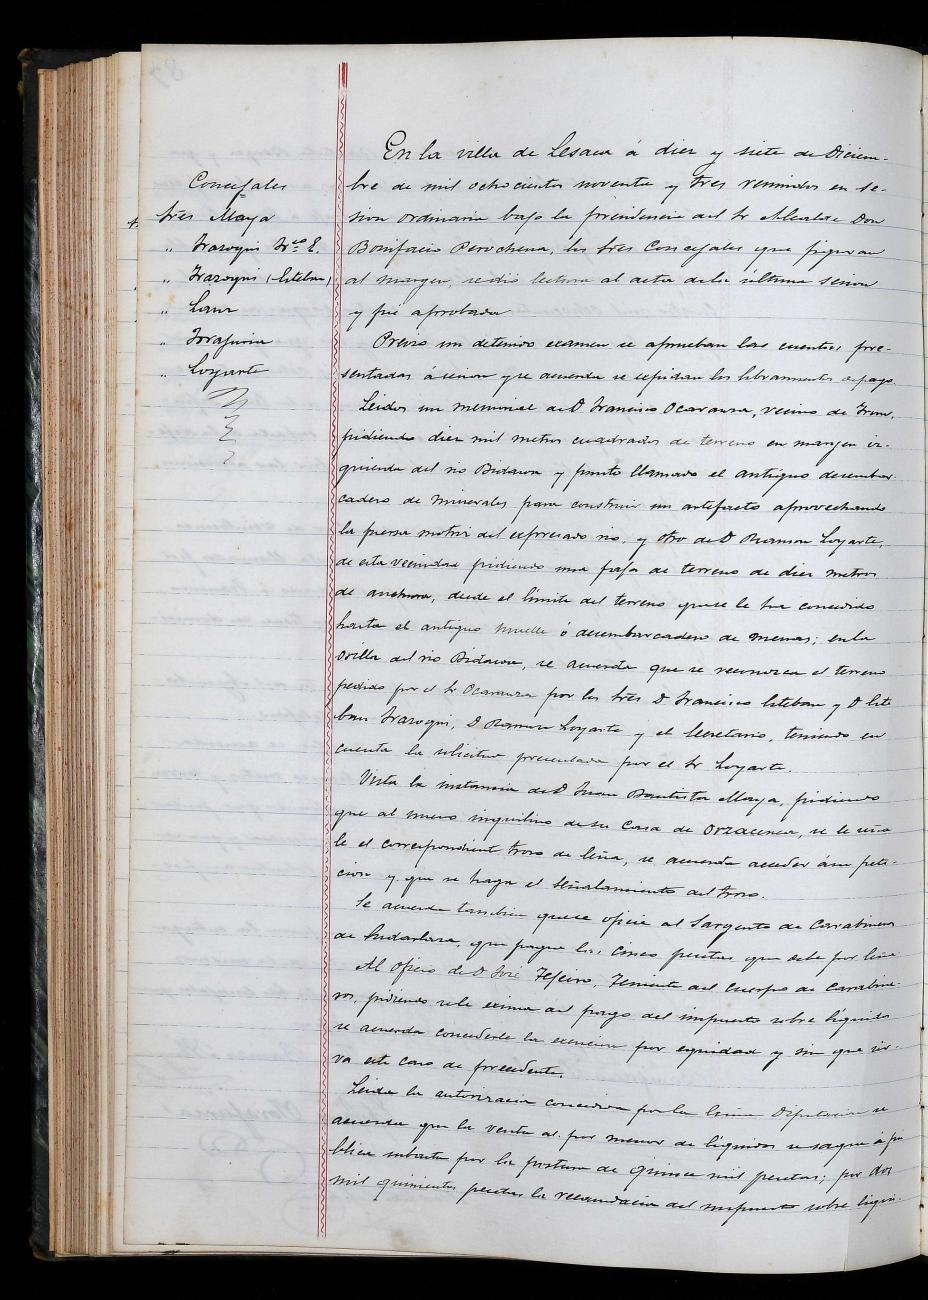 Concejales
Sres Maya
" Irazoqui Frco E.
" Irazoqui (Esteban)
" Lanz
" Torajuria
" Loyarte
En la villa de Lesaca á diez y siete de Diciem-
bre de mil ochocientos noventa y tres reunidos en se-
sion ordinaria bajo la presidencia del Sr Alcalde Don
Bonifacio Perochena, los Sres Concejales que figuran
al margen, se dió lectura al acta de la última sesion
y fué aprobada
Previo un detenido examen se aprueban las cuentas pre-
sentadas á sesion y se acuerda se expidan los libramientos de pago.
Leidos un memorial de D Francisco Ocaranza, vecino de Irun,
pidiendo diez mil metros cuadrados de terreno en margen iz-
quierda del rio Bidasoa y punto llamado el antiguo desembar-
cadero de minerales para construir un artefacto aprovechando
la fuerza motriz del expresado rio, y otro de D Ramon Loyarte,
de esta vecindad pidiendo una faja de terreno de diez metros
de anchura, desde el límite del terreno que se le ha concedido
hasta el antiguo muelle ó desembarcadero de menas; en la
orilla del rio Bidasoa, se acuerda que se reconozca el terreno
pedido por el Sr Ocaranza por los Sres D Francisco Esteban y D Este-
ban Irazoqui, D Ramon Loyarte y el Secretario, teniendo en
cuenta la solicitud presentada por el Sr Loyarte.
Vista la instancia de D Juan Bautista Maya, pidiendo
que al nuevo inquilino de su casa de Orzacenea, se le seña
le el correspondiente trozo de leña, se acuerda acceder á su peti-
cion y que se haga el señalamiento del trozo.
Se acuerda tambien que se oficie al Sargento de Carabineros
de Endarlaza, que pague las cinco pesetas que debe por leña
Al oficio de D José Tejeiro, Teniente del Cuerpo de Carabine-
ros, pidiendo se le exima del pago del impuesto sobre líquidos
se acuerda concederle la exencion por equidad y sin que sir-
va este caso de precedente.
Leida la autorizacion concedida por la Excma Diputacion se
acuerda que la venta al por menor de líquidos se saque á pú
blica subasta por la postura de quince mil pesetas; por dos
mil quinientas pesetas la recaudacion del impuesto sobre líqui-